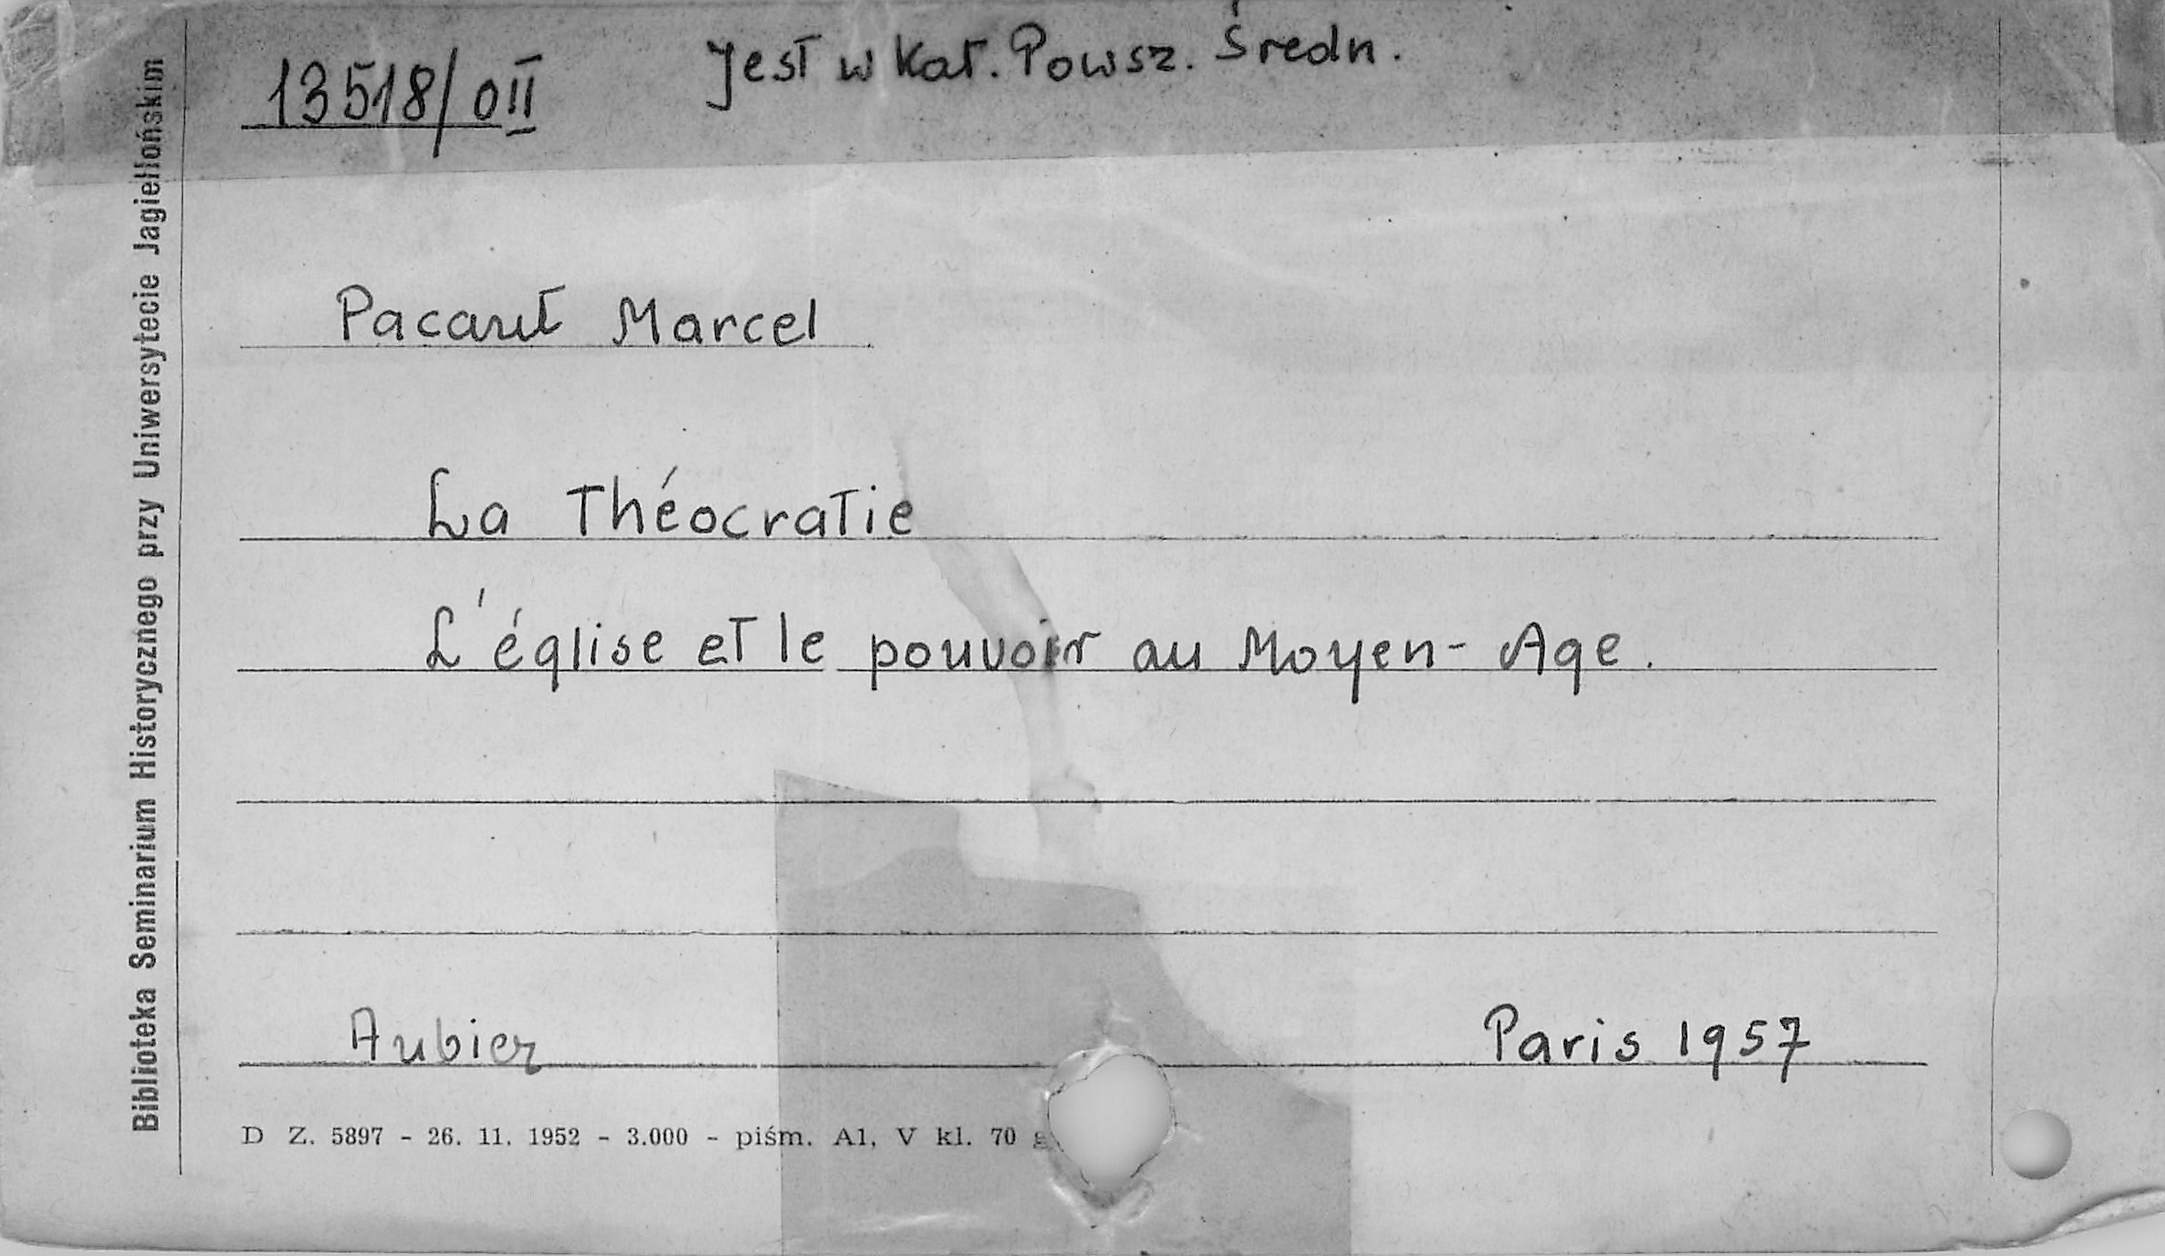 13518/OII
Jest w Kat. Powsz. Średn.
Pacaut Marcel
La Théocratie
L'église et le pouvoir au Moyen-Age.
Aubier
Paris 1957
D Z. 5897 - 26. 11. 1952 - 3.000 - piśm. A1, V kl. 70 g
Biblioteka Seminarium Historycznego przy Uniwersytecie Jagiellońskim